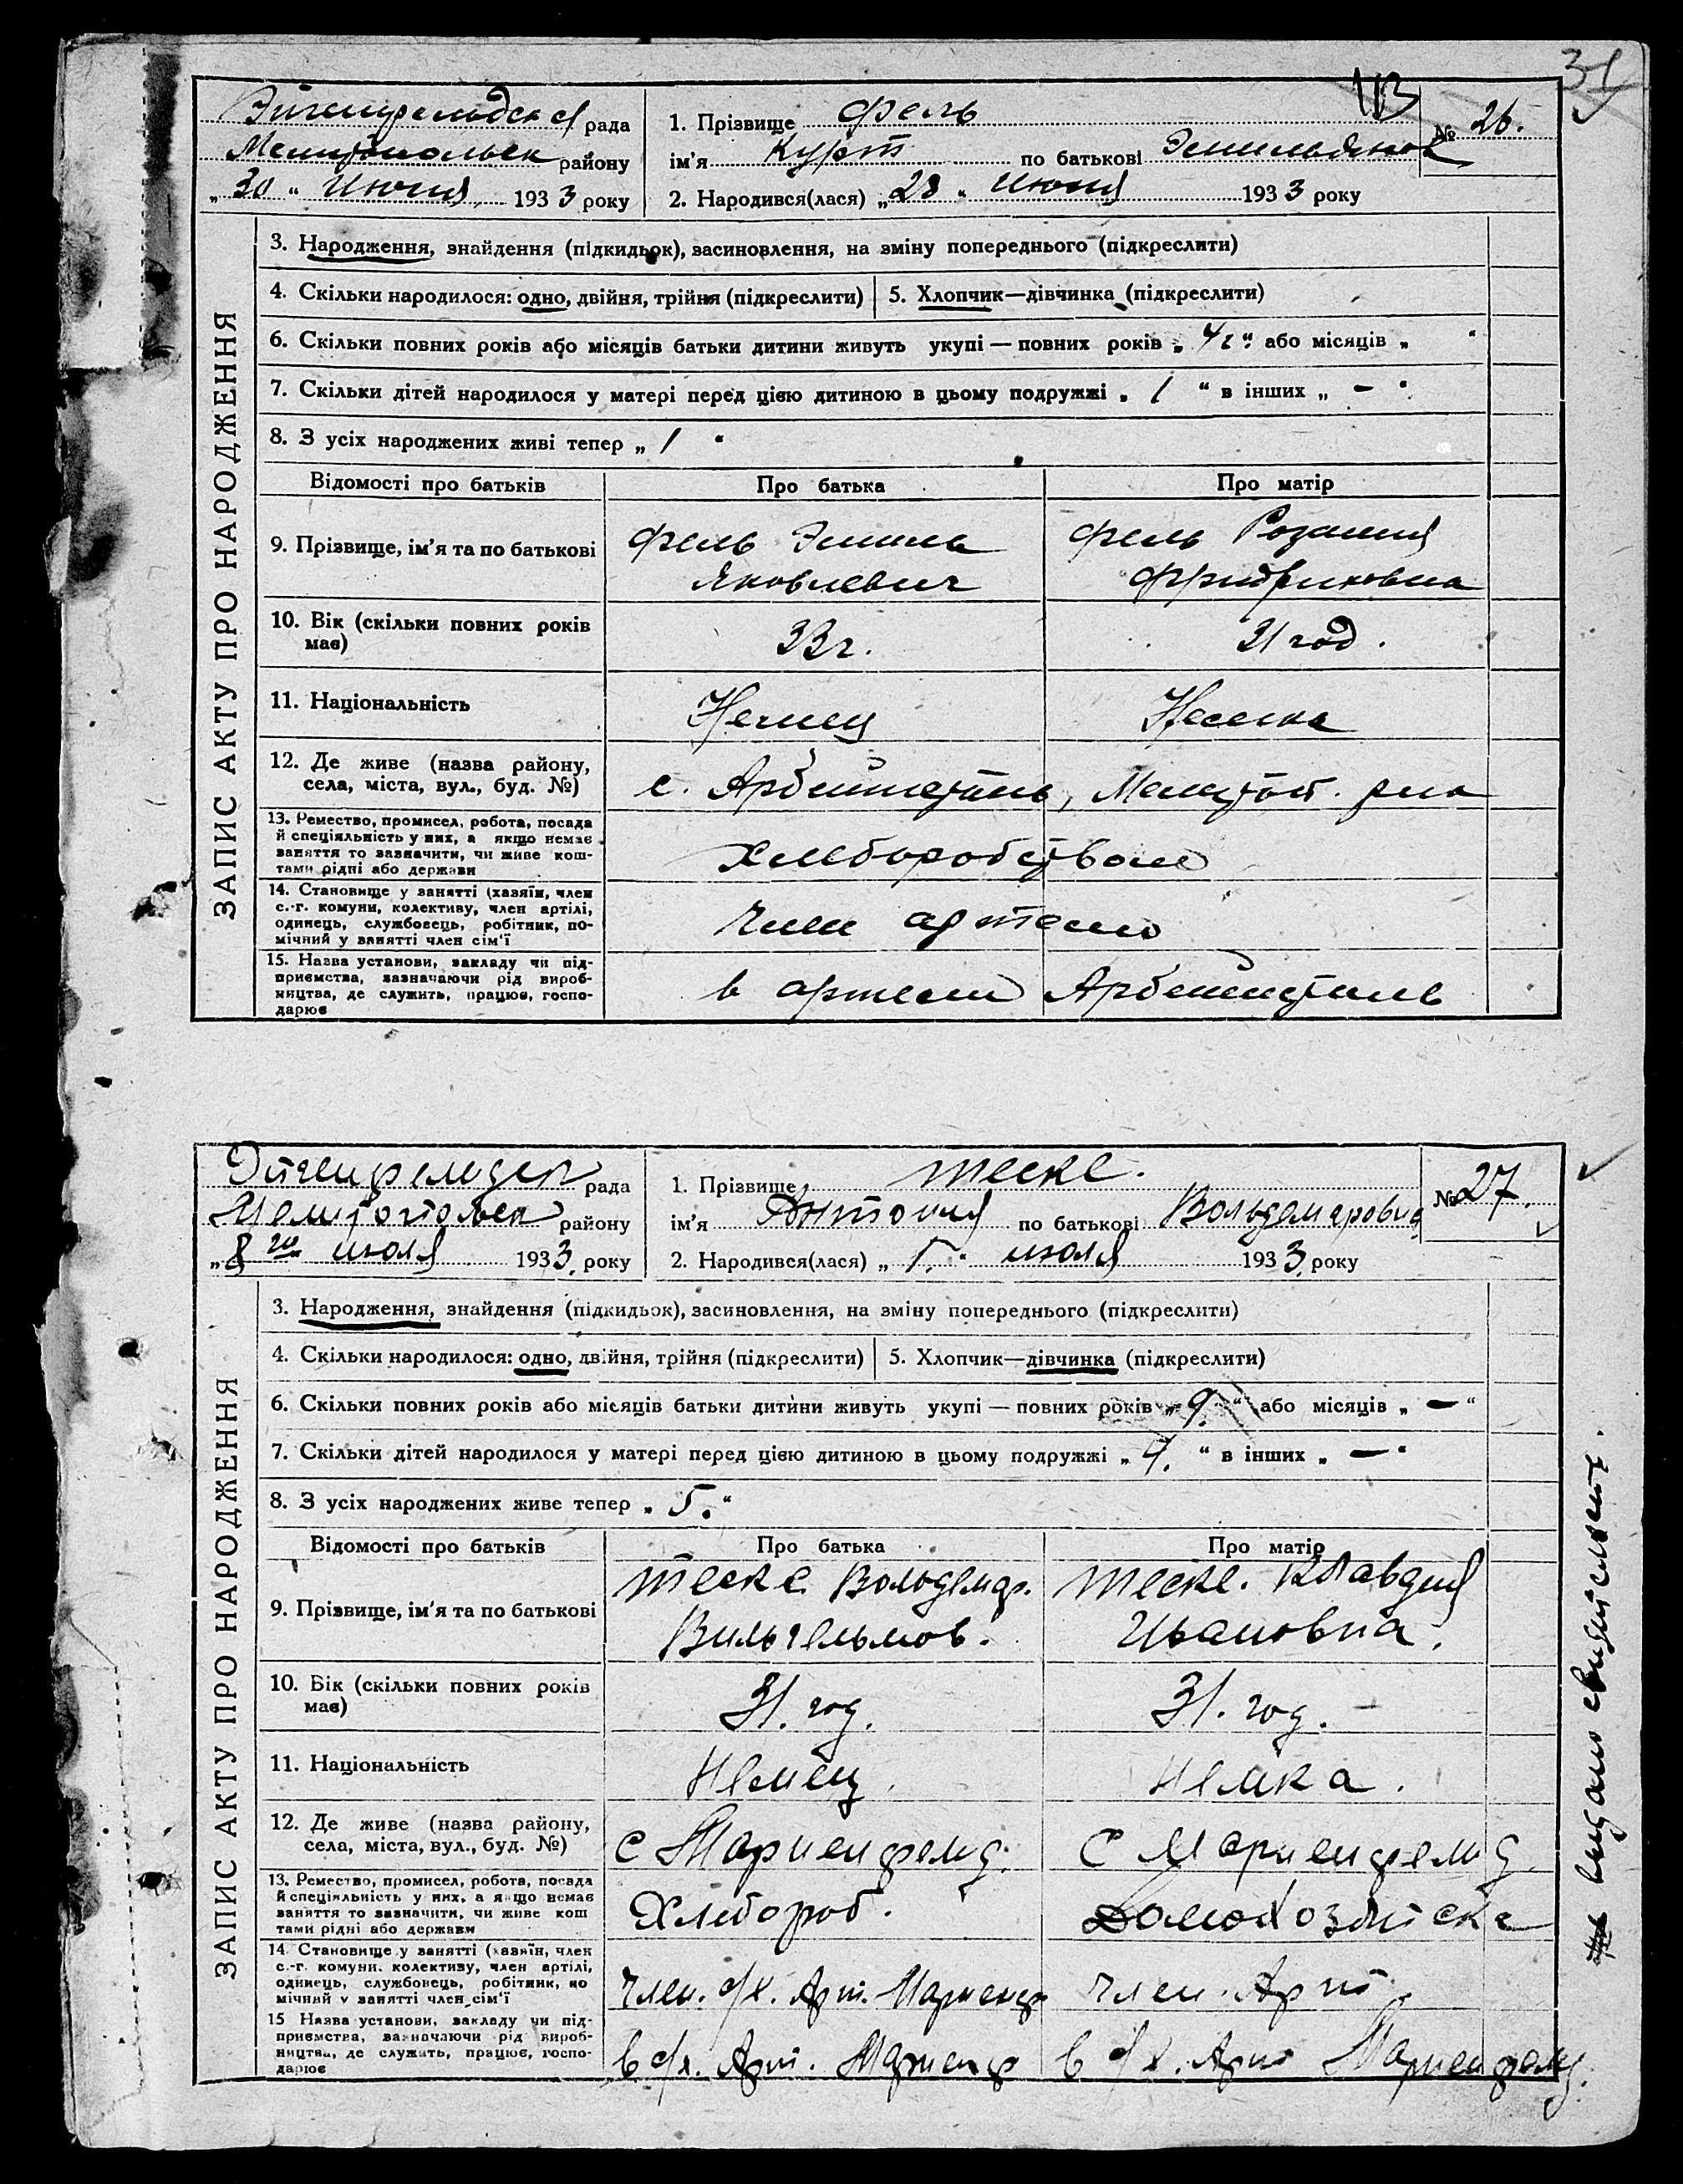 31
113
Эйгенфельдская рада
Мелитопольск району
„30“ Июня 1933 року
1. Прізвище Фель
ім'я Курт по батькові Эмильевич
2. Народився(лася) „28“ Июня 1933 року
№ 26.
ЗАПИС АКТУ ПРО НАРОДЖЕННЯ
3. Народження, знайдення (підкидьок), засиновлення, на зміну попереднього (підкреслити)
4. Скільки народилося: одно, двійня, трійня (підкреслити) 5. Хлопчик—дівчинка (підкреслити)
6. Скільки повних років або місяців батьки дитини живуть укупі — повних років „4г“ або місяців „ “
7. Скільки дітей народилося у матері перед цією дитиною в цьому подружжі „1“ в інших „—“
8. З усіх народжених живі тепер „1“
Відомості про батьків Про батька Про матір
9. Прізвище, ім'я та по батькові
Фель Эмиль Фель Розалия
Яковлевич Фридриховна
10. Вік (скільки повних років
має) 33 г. 31 год.
11. Національність Немец Немка
12. Де живе (назва району,
села, міста, вул., буд. №) с. Арбейтсталь, Мелитоп. р-на
13. Ремество, промисел, робота, посада
й спеціяльність у них, а якщо немає
заняття то зазначити, чи живе кош-
тами рідні або держави
Хлеборобством
14. Становище у занятті (хазяїн, член
с.-г. комуни, колективу, член артілі,
одинець, службовець, робітник, по-
мічний у занятті член сім'ї
член артели
15. Назва установи, закладу чи під-
приємства, зазначаючи рід вироб-
ництва, де служить, працює, госпо-
дарює
в артели Арбейтсталь
Эйгенфельдск рада
Мелитопольск району
„8го июля 1933 року
1. Прізвище Теске.
ім'я Антония по батькові Вольдемаровна
2. Народився(лася) „5.“ июля 1933 року
№ 27.
ЗАПИС АКТУ ПРО НАРОДЖЕННЯ
3. Народження, знайдення (підкидьок), засиновлення, на зміну попереднього (підкреслити)
4. Скільки народилося: одно, двійня, трійня (підкреслити) 5. Хлопчик—дівчинка (підкреслити)
6. Скільки повних років або місяців батьки дитини живуть укупі — повних років „9.“ або місяців „—“
7. Скільки дітей народилося у матері перед цією дитиною в цьому подружжі „4.“ в інших „—“
8. З усіх народжених живе тепер „5.“
Відомості про батьків Про батька Про матір
9. Прізвище, ім'я та по батькові
Теске Вольдемар. Теске. Клавдия
Вильгельмов. Ивановна.
10. Вік (скільки повних років
має) 31. год. 31. год.
11. Національність Немец. Немка.
12. Де живе (назва району,
села, міста, вул., буд. №) с Мариенфельд. с Мариенфельд.
13. Ремество, промисел, робота, посада
й спеціяльність у них, а якщо немає
заняття то зазначити, чи живе кош
тами рідні або держави
Хлебороб. Домохозяйска
14 Становище у занятті (хазяїн, член
с.-г. комуни. колективу, член артілі,
одинець, службовець, робітник, по
мічний у занятті член сім'ї
член. с/х. Арт. Мариенф член. Арт.
15 Назва установи, закладу чи під-
приємства, зазначаючи рід вироб-
ництва, де служить, працює, госпо-
дарює
в с/х. Арт. Мариенф в с/х. Арт Мариенфельд.
выдано свидительст.